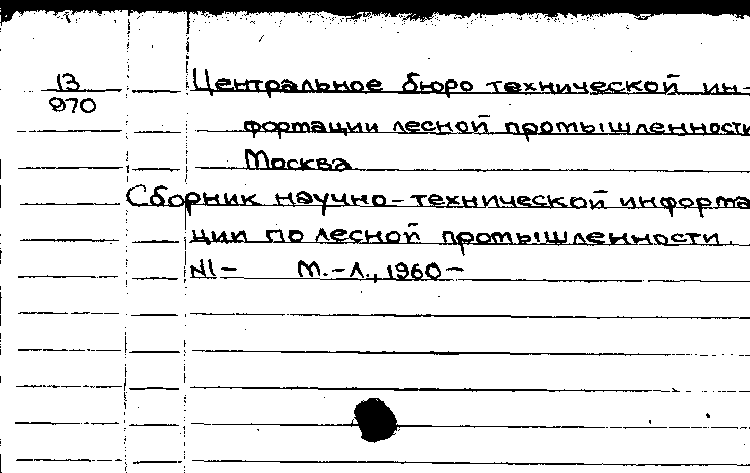 13
970
Центральное бюро технической ин-
формации лесной промышленности
Москва
Сборник научно-технической информа
ции по лесной промышленности.
N1- М.-Л., 1960-